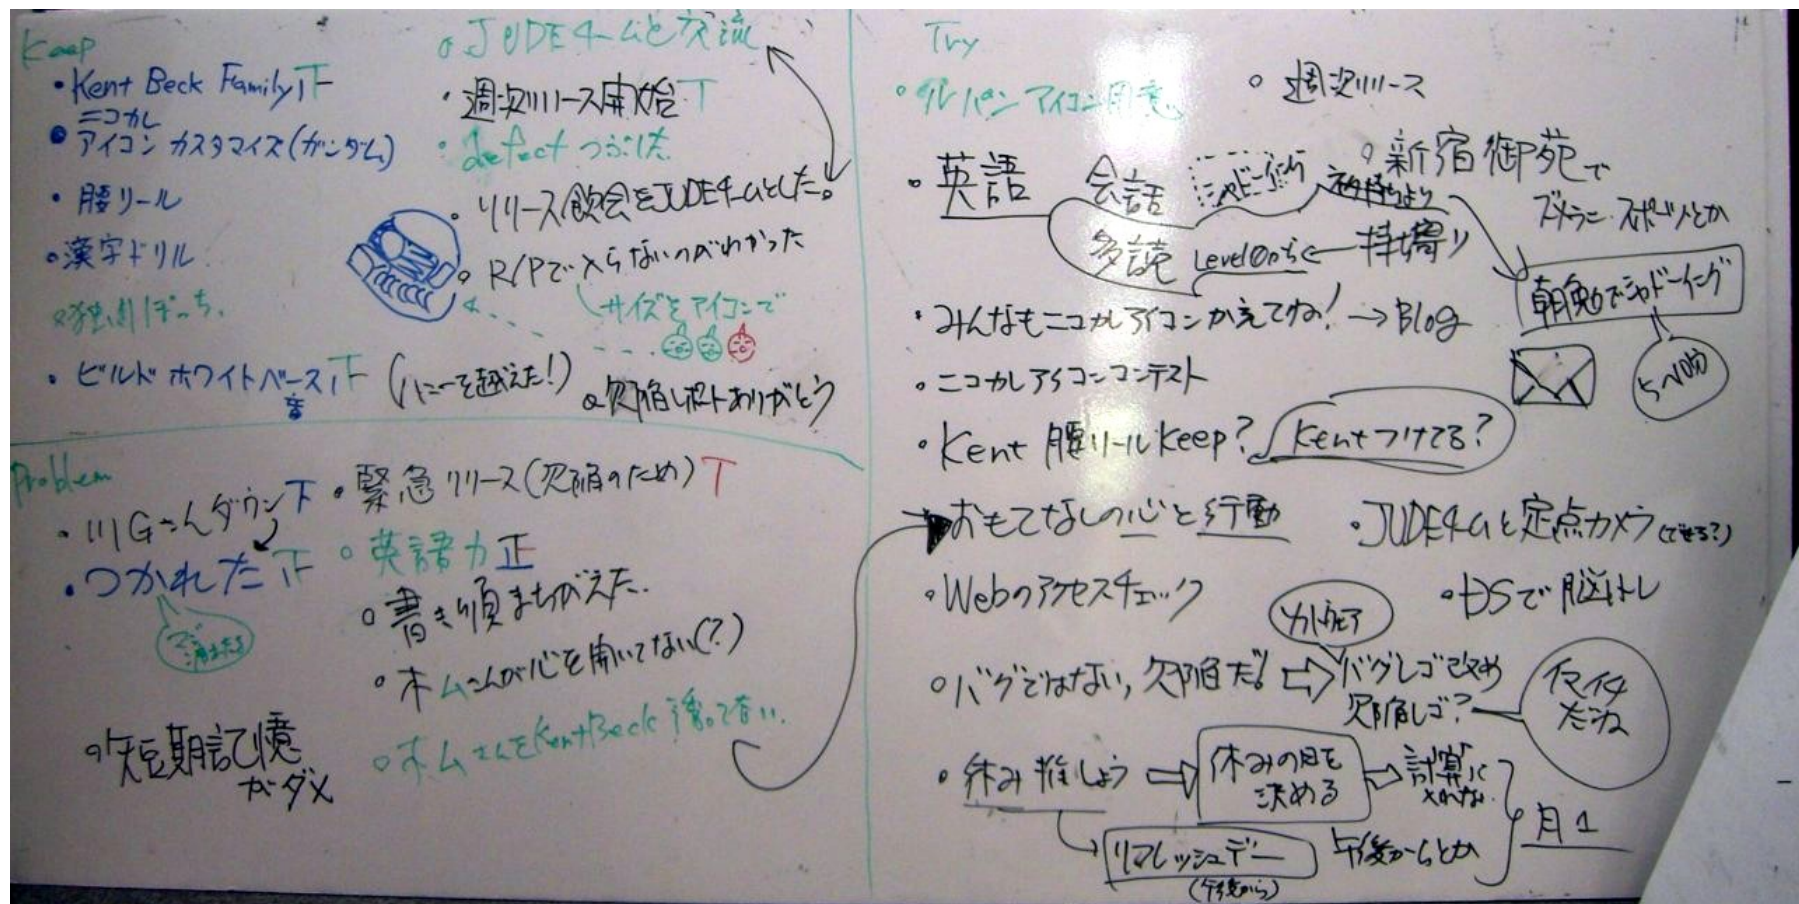 Keep
・Kent Beck Family 正
ニコカレ
・アイコン カスタマイズ(ガンダム)
・腰リール
・漢字ドリル
ぼっち
・ビルド ホワイトベース 正
(ハニーを越えた!)
○JUDEチームと交流
・週次リリース開始 T
・defect つぶした
・リリース飲会をJUDEチームとした。
○R/Pで入らないのがわかった
サイズをアイコンで
○欠陥レポートありがとう
Problem
・川Gさんダウン 下
・つかれた 正
○短期記憶
がダメ
・緊急リリース(欠陥のため) T
○英語力 正
○書き順まちがえた.
・ホムさんが心を開いてない(?)
○ホムさんをKent Beck
Try
○ルパン アイコン用意
○週次リリース
・英語
会話
シャドーイング
多読
Level0から
持寄り
○新宿御苑で
ズメラニ・スポーツとか
朝勉でシャドーイング
5〜10分
・みんなもニコカレアイコンかえてね! → Blog
・ニコカレアイコンコンテスト
・Kent 腰リール Keep?
Kentつけてる?
おもてなしの心と行動
・JUDEチームと定点カメラ(できる?)
・Webのアクセスチェック
・DSで脳トレ
○バグではない, 欠陥だ! ⇒ バグレゴ改め
欠陥レゴ?
イマイチ
だね
・休み推しょう ⇒ 休みの日を
決める
⇒ 計算に
リフレッシュデー
(午後から)
午後からとか
月1